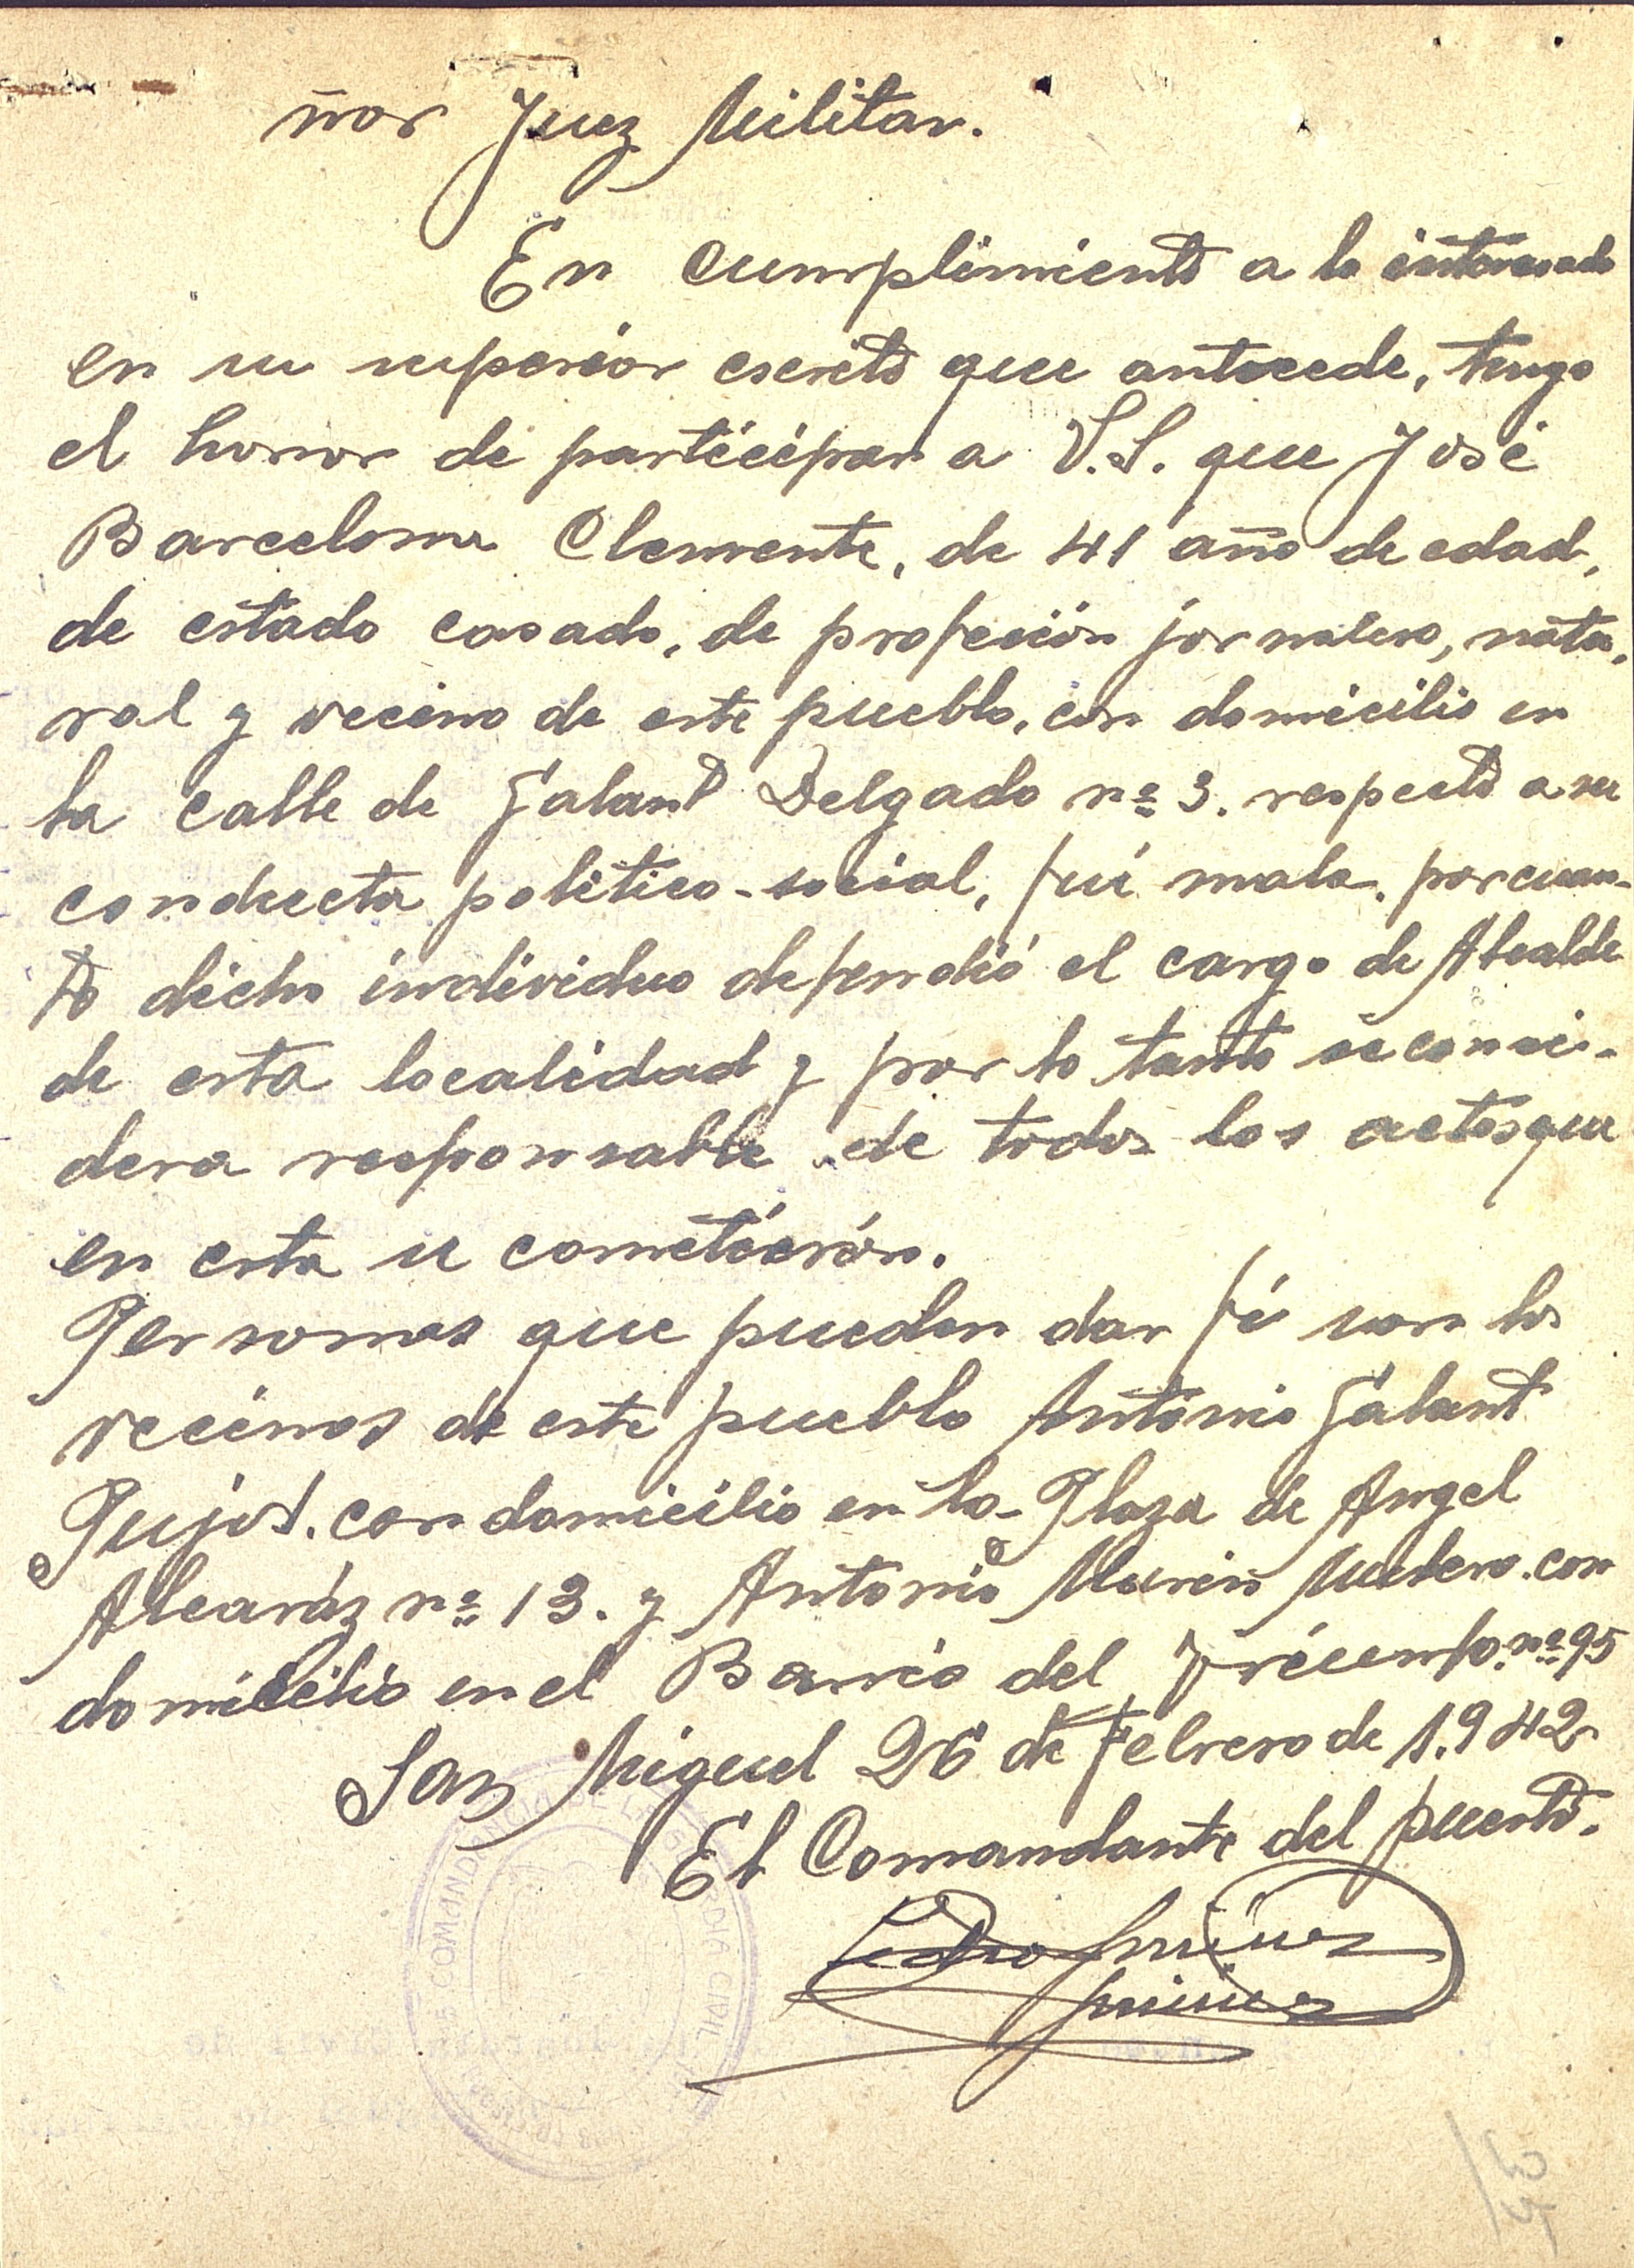 ñor Juez Militar.
En cumplimiento a lo interesado
en su superior escrito que antecede, tengo
el honor de participar a V.S. que José
Barcelona Clemente, de 41 año de edad,
de estado casado, de profeción jornalero, natu-
ral y vecino de este pueblo, con domicilio en
la calle de Galant Delgado nº 3. respecto a su
conducta politico-social, fué mala, por cuan-
to dicho individuo defendió el cargo de Alcalde
de esta localidad y por lo tanto se consi-
dera responsable de todos los actos que
en esta se cometierón.
Personas que pueden dar fé son los
vecinos de este pueblo Antonio Galant
Pujol. con domicilio en la Plaza de Angel
Alcaráz nº 13. y Antonio Marin con
domicilio en el Barrio del Triunfo. nº 95
San Miguel 26 de Febrero de 1.942
El Comandante del puesto.
Pedro Jiménez
Jiménez
COMANDANCIA DE LA GUARDIA CIVIL